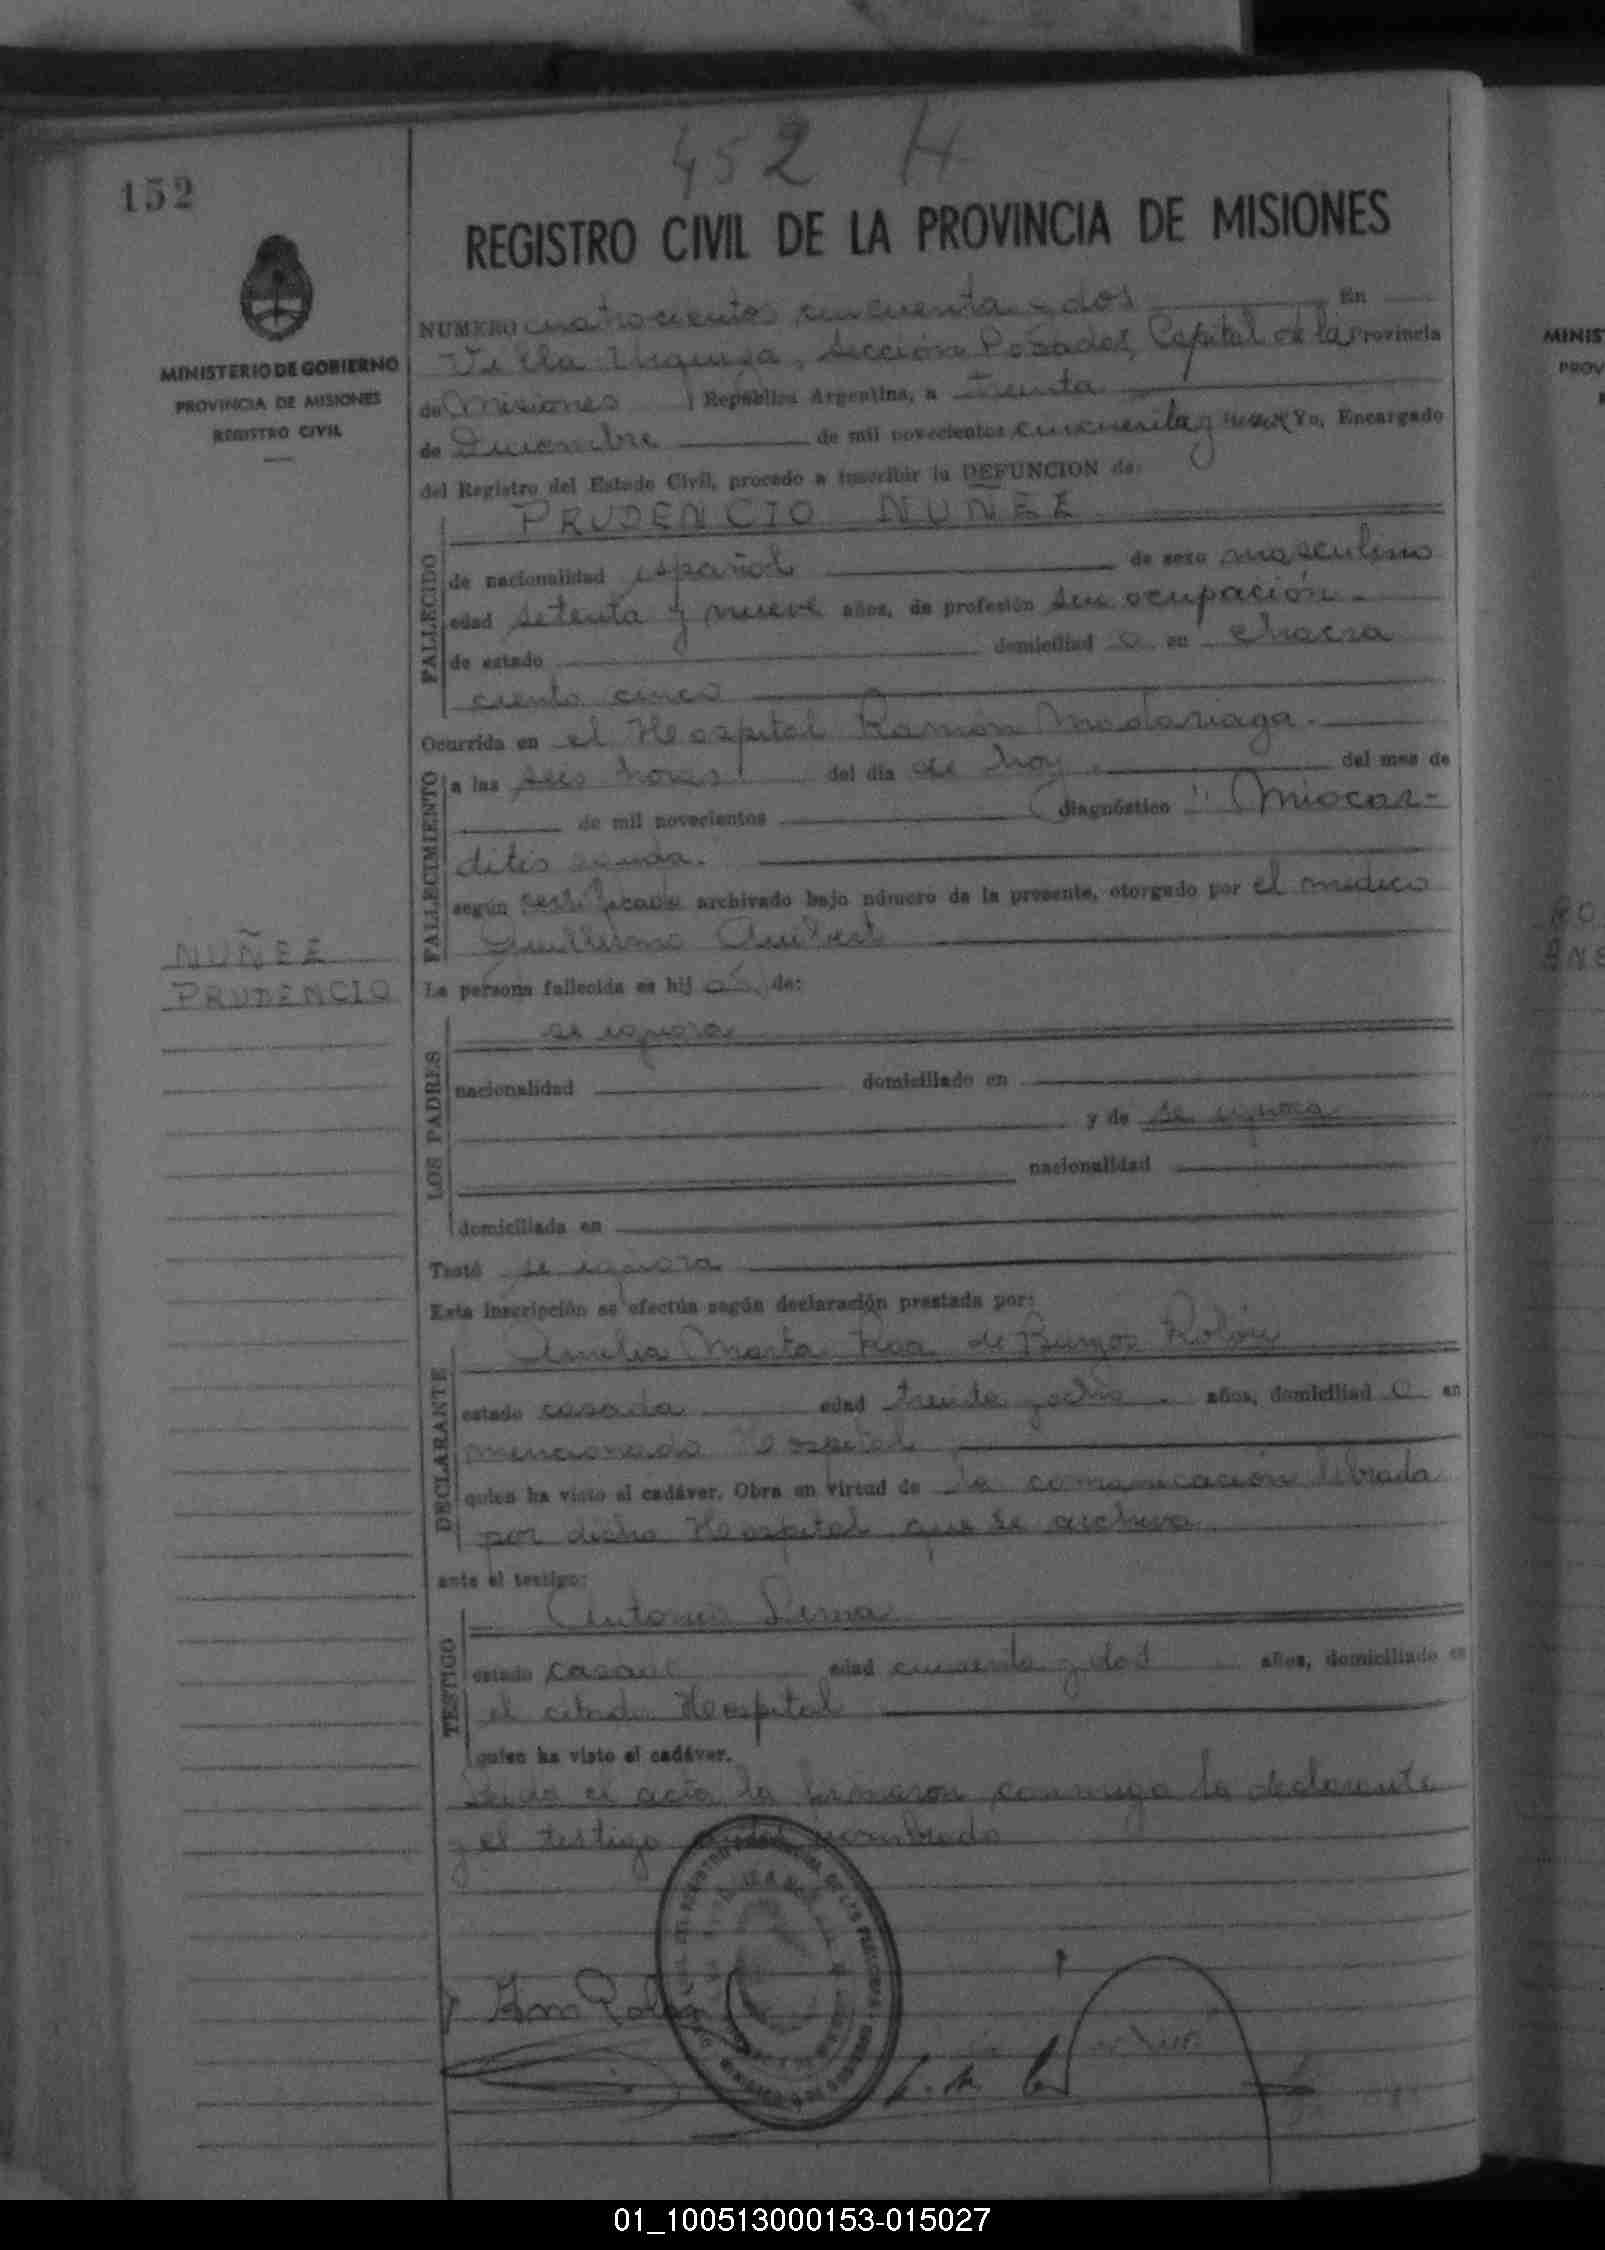 452 H
152
REGISTRO CIVIL DE LA PROVINCIA DE MISIONES
MINISTERIO DE GOBIERNO
PROVINCIA DE MISIONES
REGISTRO CIVIL
NUMERO cuatrocientos cincuenta y dos En
Villa Urquiza, Sección Posadas, Capital de la Provincia
de Misiones República Argentina, a treinta
de Diciembre de mil novecientos cincuenta y Yo, Encargado
del Registro del Estado Civil, procedo a inscribir la DEFUNCION de:
PRUDENCIO NUÑEZ
FALLECIDO
de nacionalidad español de sexo masculino
edad setenta y nueve años, de profesión sin ocupación.
de estado domiciliad o en chacra
ciento cinco
Ocurrida en el Hospital Ramón Madariaga.
FALLECIMIENTO
a las seis horas del día de hoy del mes de
de mil novecientos diagnóstico "Miocar-
ditis aguda.
según certificado archivado bajo número de la presente, otorgado por el médico
Guillermo
NUÑEZ
PRUDENCIO
La persona fallecida es hij o de:
LOS PADRES
se ignora
nacionalidad domiciliado en
y de se ignora
nacionalidad
domiciliada en
Testó se ignora
Esta inscripción se efectúa según declaración prestada por:
DECLARANTE
Amelia Marta de Burgos Rolón
estado casada edad treinta y ocho años, domiciliad o en
mencionado Hospital
quien ha visto el cadáver. Obra en virtud de la comunicación librada
por dicho Hospital que se archiva
ante el testigo:
TESTIGO
Antonio Lerma
estado casado edad cincuenta y dos años, domiciliado en
el citado Hospital
quien ha visto el cadáver.
Leída el acta la firmaron conmigo la declarante
y el testigo nombrado
MINIS
PROV
01_100513000153-015027